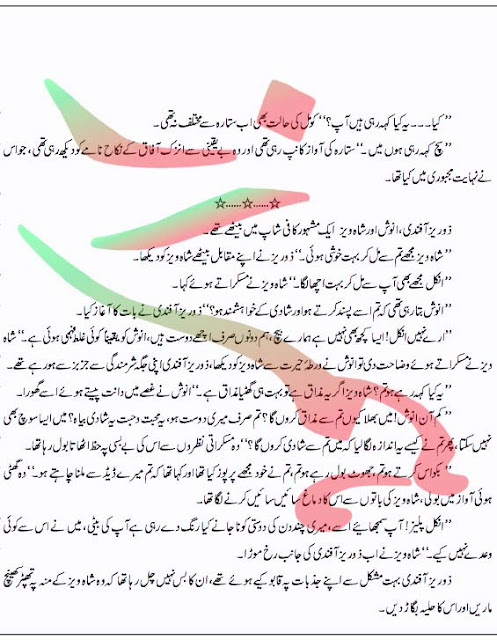 ’’کیا۔۔۔۔ یہ کیا کہہ رہی ہیں آپ؟‘‘ کومل کی حالت بھی اب ستارہ سے مختلف نہ تھی۔
’’سچ کہہ رہی ہوں میں۔‘‘ ستارہ کی آواز کانپ رہی تھی اور وہ بے یقینی سے انزک آفاق کے نکاح نامے کو دیکھ رہی تھی، جو اس
نے نہایت مجبوری میں کیا تھا۔
☆......☆......☆
ذوریز آفندی، انوش اور شاہ ویز ایک مشہور کافی شاپ میں بیٹھے تھے۔
’’شاہ ویز مجھے تم سے مل کر بہت خوشی ہوئی۔‘‘ ذوریز نے اپنے مقابل بیٹھے شاہ ویز کو دیکھا۔
’’انکل مجھے بھی آپ سے مل کر بہت اچھا لگا۔‘‘ شاہ ویز نے مسکراتے ہوئے کہا۔
’’انوش بتا رہی تھی کہ تم اسے پسند کرتے ہو اور شادی کے خواہشمند ہو؟‘‘ ذوریز آفندی نے بات کا آغاز کیا۔
’’ارے نہیں انکل! ایسا کچھ بھی نہیں ہے ہمارے بیچ، ہم دونوں صرف اچھے دوست ہیں، انوش کو یقیناً کوئی غلط فہمی ہوئی ہے۔‘‘ شاہ
ویز نے مسکراتے ہوئے وضاحت دی تو انوش نے ورطۂ حیرت سے شاہ ویز کو دیکھا، ذوریز آفندی اپنی جگہ شرمندگی سے جزبز سے ہو رہے تھے۔
’’یہ کیا کہہ رہے ہو تم؟ شاہ ویز اگر یہ مذاق ہے تو بہت ہی گھٹیا مذاق ہے۔‘‘ انوش نے غصے میں دانت پیستے ہوئے اسے گھورا۔
’’کم آن انوش! میں بھلا کیوں تم سے مذاق کروں گا؟ تم صرف میری دوست ہو، یہ محبت وحبت یہ شادی بیاہ؟ میں ایسا سوچ بھی
نہیں سکتا، پھر تم نے کیسے یہ اندازہ لگا لیا کہ میں تم سے شادی کروں گا؟‘‘ وہ مسکراتی نظروں سے اس کی بے بسی پہ حظ اٹھاتا بول رہا تھا۔
’’بکواس کرتے ہو تم، جھوٹ بول رہے ہو تم، تم نے خود مجھے پرپوز کیا تھا اور کہا تھا کہ تم میرے ڈیڈ سے ملنا چاہتے ہو۔‘‘ وہ گھٹی
ہوئی آواز میں بولی، شاہ ویز کی باتوں سے اس کا دماغ سائیں سائیں کرنے لگا تھا۔
’’انکل پلیز! آپ سمجھائیے اسے، میری چند دن کی دوستی کو نا جانے کیا رنگ دے رہی ہے آپ کی بیٹی، میں نے اس سے کوئی
وعدے نہیں کیے۔‘‘ شاہ ویز نے اب ذوریز آفندی کی جانب رخ موڑا۔
ذوریز آفندی بہت مشکل سے اپنے جذبات پہ قابو کیے ہوئے تھے، ان کا بس نہیں چل رہا تھا کہ وہ شاہ ویز کے منہ پہ تھپڑ کھینچ
ماریں اور اس کا حلیہ بگاڑ دیں۔